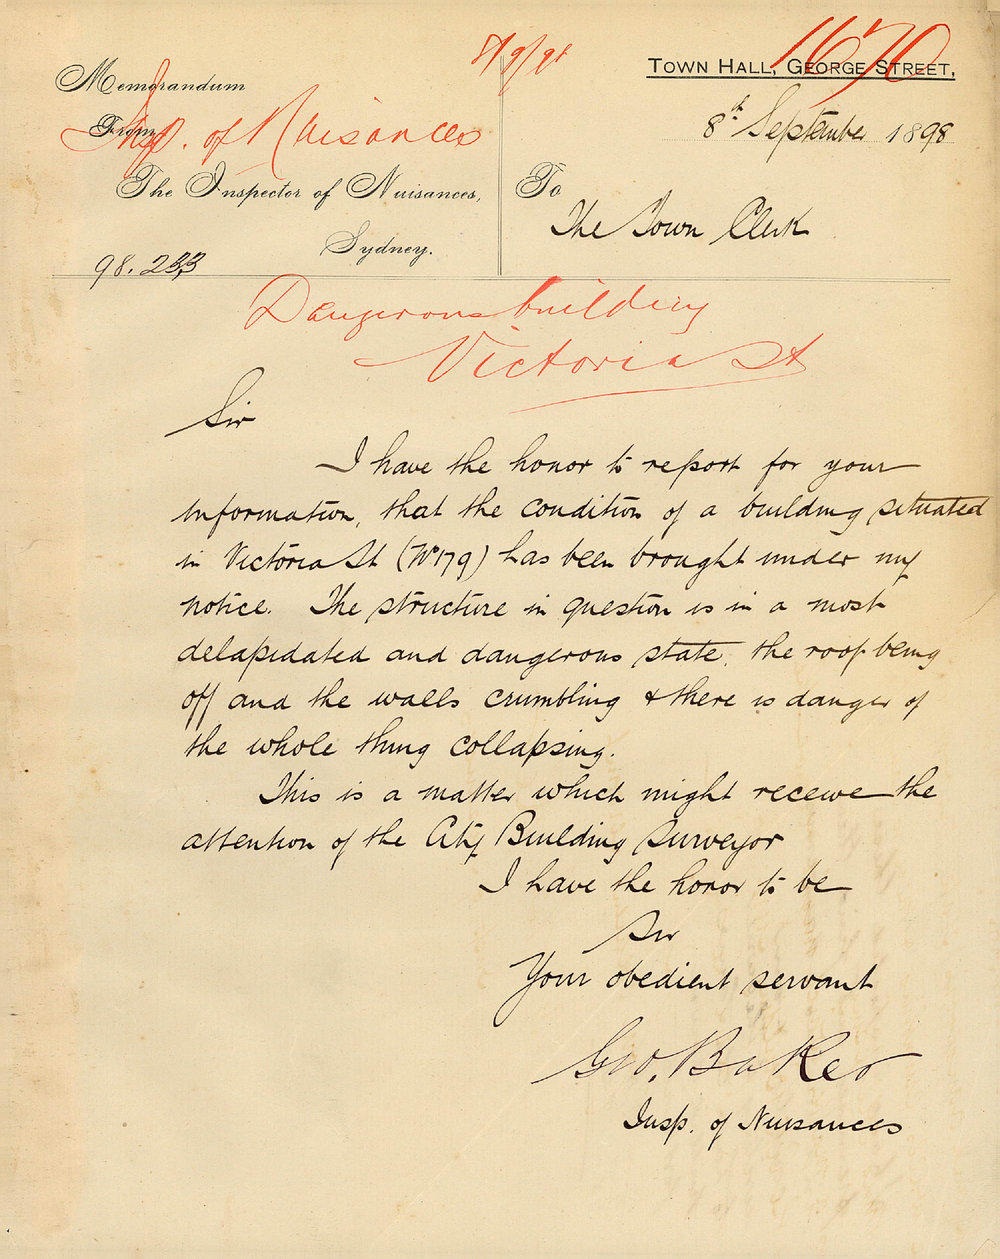 8/9/98
1670
TOWN HALL, GEORGE STREET,
Memorandum
From
Insp. of Nuisances
8th September 1898
The Inspector of Nuisances,
Sydney.
To
The Town Clerk
98.233
Dangerous building
Victoria St
Sir
I have the honor to report for your
information, that the condition of a building situated
in Victoria St (No 179) has been brought under my
notice. The structure in question is in a most
delapidated and dangerous state, the roof being
off and the walls crumbling & there is danger of
the whole thing collapsing.
This is a matter which might receive the
attention of the City Building Surveyor
I have the honor to be
Sir
Your obedient servant
Geo. Baker
Insp. of Nuisances